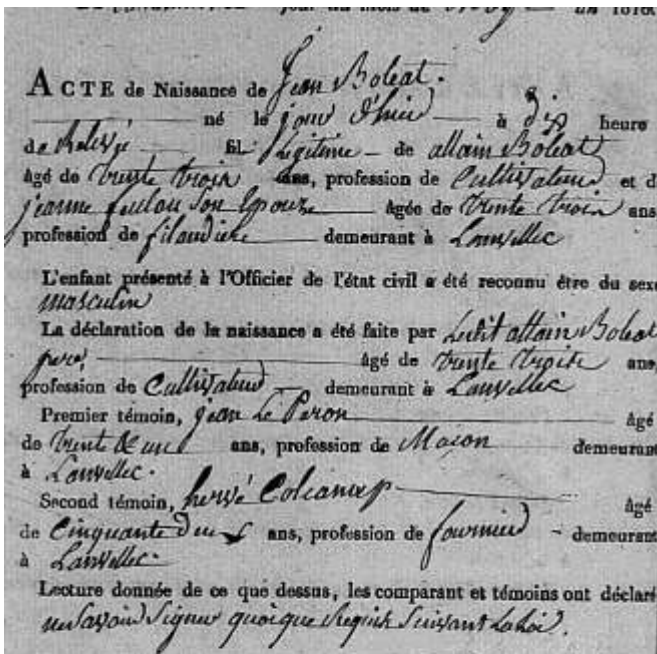 jour du mois de
ACTE de Naissance de Jean Boleat.
né le jour d'hier à dix heure
de Relevé fil Legitime de allain Boleat
âgé de trente trois ans, profession de Cultivateur et d
jeanne son Epouze âgée de trente trois ans
profession de filandiere demeurant à Lanvellec
L'enfant présenté à l'Officier de l'état civil a été reconnu être du sexe
masculin
La déclaration de la naissance a été faite par Ledit allain Boleat
pere, âgé de trente trois ans,
profession de Cultivateur demeurant à Lanvellec
Premier témoin, jean Le Peron âgé
de trente & un ans, profession de Maçon demeurant
à Lanvellec.
Second témoin, hervé âgé
de Cinquante deux ans, profession de fournier - demeurant
à Lanvellec.
Lecture donnée de ce que dessus, les comparant et témoins ont déclaré
ne Savoir Signer quoique Requis Suivant La Loi.